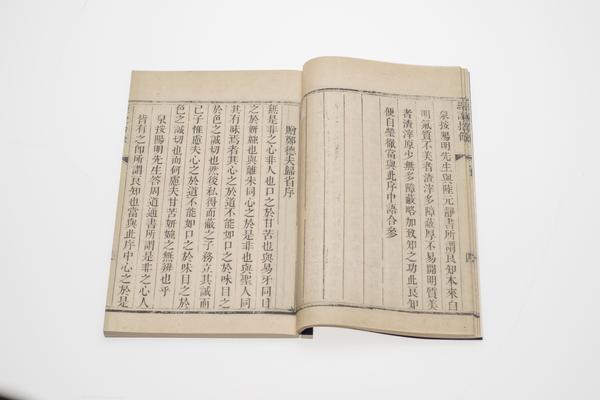 泉按陽明先生與陸元靜書所謂良知本來自
明氣質不美者渣滓多障蔽厚不易開明質美
者渣滓原少無多障蔽略加致知之功此良知
便自瑩徹當與此序中語合參
贈鄭德夫歸省序
無是非之心非人也口之於甘苦也與易牙同目
之於妍媸也與離朱同心之於是非也與聖人同
其有昧焉者其心之於道不能如口之於味目之
於色之誠切也然後私得而蔽之子務立其誠而
已子惟慮夫心之於道不能如口之於味目之於
色之誠切也而何慮夫甘苦妍媸之無辨也乎
泉按陽明先生答周道通書所謂是非之心人
皆有之卽所謂良知也當與此序中心之於是